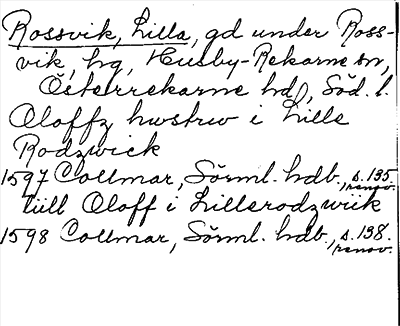 Rossvik, Lilla, gd under Ross-
vik, hg, Husby-Rekarne sn,
Österrekarne hd, Söd. l.
Oloffz hwstrw i Lille
Rodzwick
1597 Collmar, Sörml. hdb., s. 135
renov.
tiill Oloff i Lillerodzwiik
1598 Collmar, Sörml. hdb., s. 138.
renov.